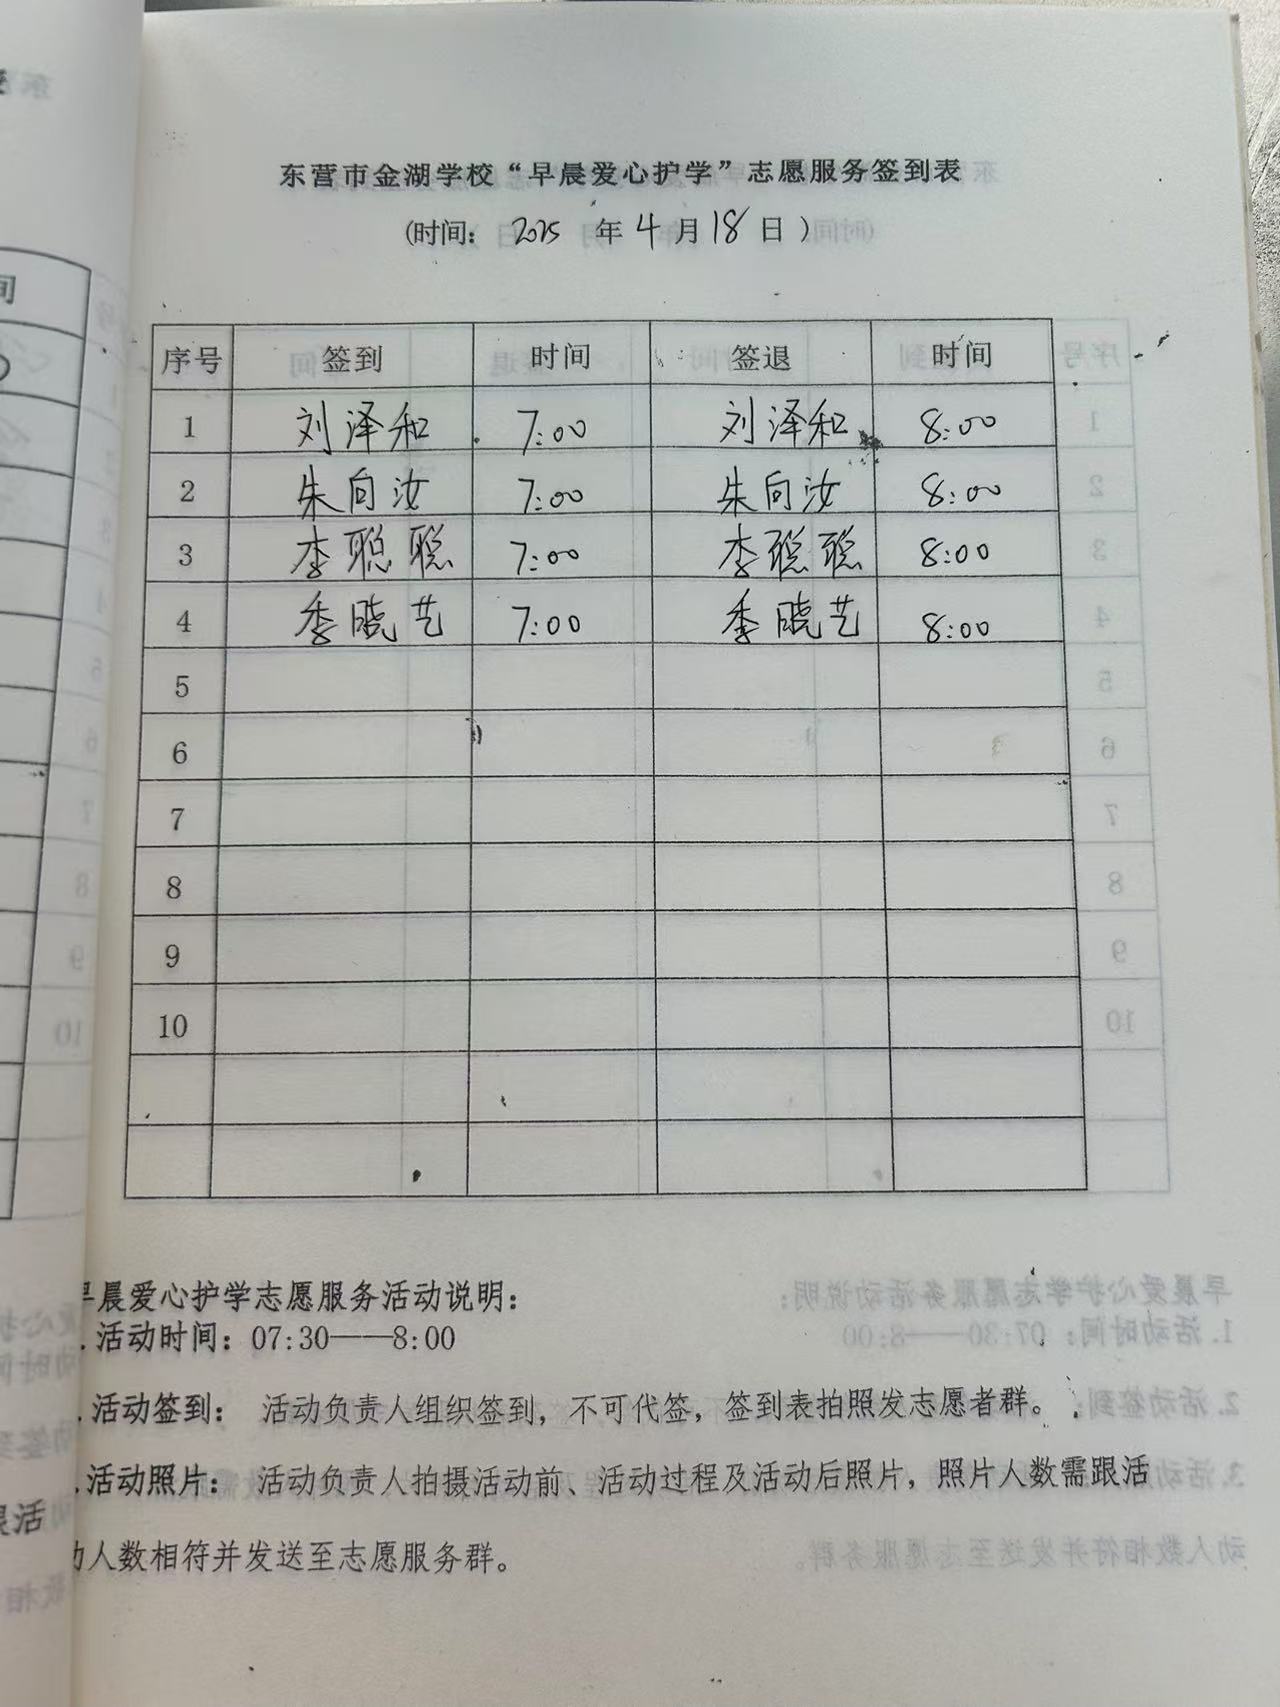 东营市金湖学校“早晨爱心护学”志愿服务签到表
(时间: 2025 年 4 月 18 日 )
序号 签到 时间 签退 时间
1 刘泽和 7:00 刘泽和 8:00
2 朱向汝 7:00 朱向汝 8:00
3 李聪聪 7:00 李聪聪 8:00
4 季晓艺 7:00 季晓艺 8:00
5
6
7
8
9
10
早晨爱心护学志愿服务活动说明:
.活动时间: 07:30——8:00
.活动签到: 活动负责人组织签到, 不可代签, 签到表拍照发志愿者群。
.活动照片: 活动负责人拍摄活动前、活动过程及活动后照片, 照片人数需跟活
动人数相符并发送至志愿服务群。